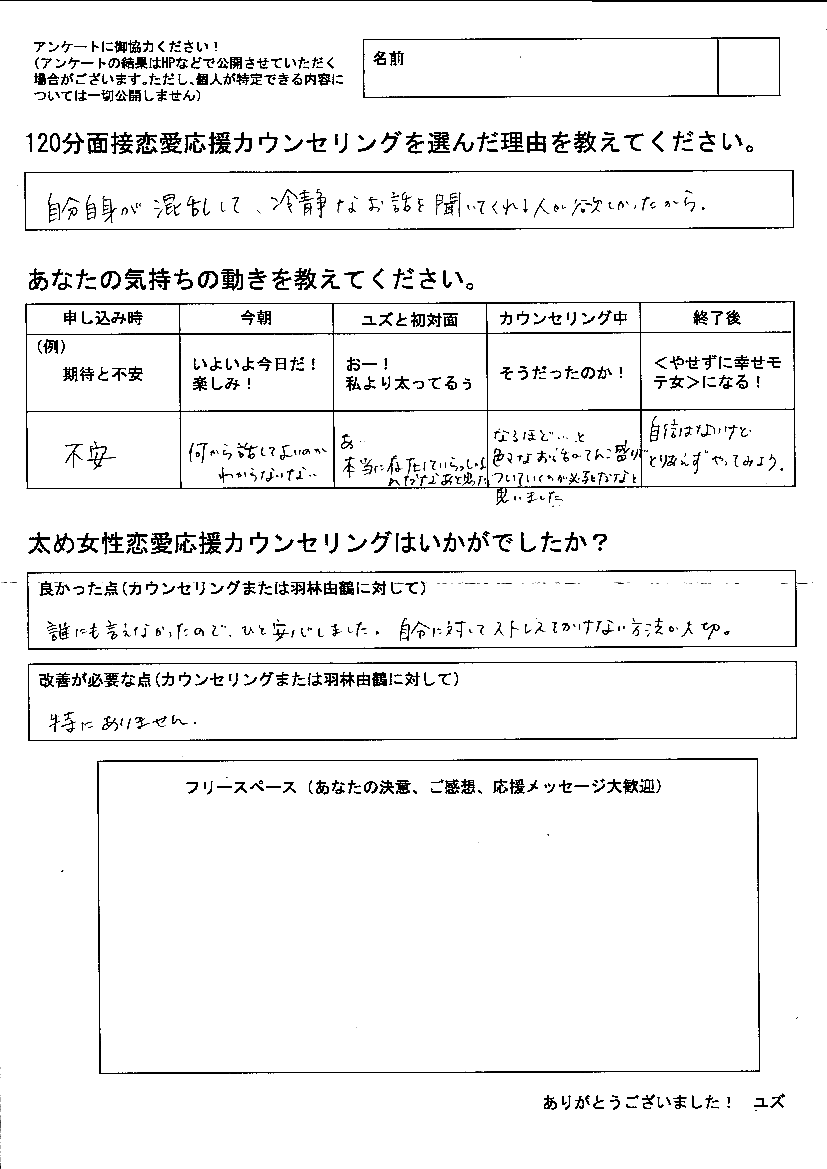 アンケートに御協力ください！
（アンケートの結果はHPなどで公開させていただく
場合がございます。ただし、個人が特定できる内容に
ついては一切公開しません）
名前
120分面接恋愛応援カウンセリングを選んだ理由を教えてください。
自分自身が混乱して、冷静なお話を聞いてくれる人が欲しかったから。
あなたの気持ちの動きを教えてください。
申し込み時 今朝 ユズと初対面 カウンセリング中 終了後
（例）
期待と不安
いよいよ今日だ！
楽しみ！
おー！
私より太ってるぅ
そうだったのか！
＜やせずに幸せモ
テ女＞になる！
不安
何から話してよいのか
わからないな…
あ…
本当に存在していらっしゃる
んだなあと思った
なるほど…と
色々なお話のてんこ盛りで
ついていくのが必死だなと
思いました
自信はないけど
とりあえずやってみよう。
太め女性恋愛応援カウンセリングはいかがでしたか？
良かった点（カウンセリングまたは羽林由鶴に対して）
誰にも言えなかったので、ひと安心しました。自分に対してストレスをかけない方法が大切。
改善が必要な点（カウンセリングまたは羽林由鶴に対して）
特にありません。
フリースペース（あなたの決意、ご感想、応援メッセージ大歓迎）
ありがとうございました！ ユズ